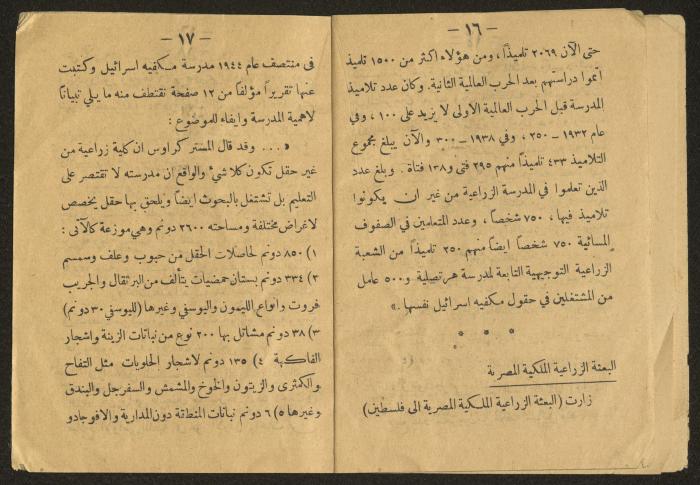 — ١٦ —
حتى الآن ٢٠٦٩ تلميذاً، ومن هؤلاء اكثر من ١٥٠٠ تلميذ
اتموا دراستهم بعد الحرب العالمية الثانية. وكان عدد تلاميذ
المدرسة قبل الحرب العالمية الاولى لا يزيد على ١٠٠، وفي
عام ١٩٣٢ – ٢٥٠، وفي ١٩٣٨ – ٣٠٠ والآن يبلغ مجموع
التلاميذ ٤٣٣ تلميذاً منهم ٢٩٥ فتى و١٣٨ فتاة. وبلغ عدد
الذين تعلموا في المدرسة الزراعية من غير ان يكونوا
تلاميذ فيها، ٧٥٠ شخصاً، وعدد المتعلمين في الصفوف
المسائية ٧٥٠ شخصاً ايضاً منهم ٢٥٠ تلميذاً من الشعبة
الزراعية التوجيهية التابعة لمدرسة هرتصلية و٥٠٠ عامل
من المشتغلين في حقول مكفيه اسرائيل نفسها.»
* * *
البعثة الزراعية الملكية المصرية
زارت (البعثة الزراعية الملكية المصرية الى فلسطين)
— ١٧ —
فى منتصف عام ١٩٤٤ مدرسة مكفيه اسرائيل وكتبت
عنها تقريراً مؤلفاً من ١٢ صفحة نقتطف منه ما يلي تبياناً
لاهمية المدرسة وايفاء للموضوع :
«... وقد قال المستر كراوس ان كلية زراعية من
غير حقل تكون كلا شيء والواقع ان مدرسته لا تقتصر على
التعليم بل تشتغل بالبحوث ايضاً ويلحق بها حقل يخصص
لاغراض مختلفة ومساحته ٢٦٠٠ دونم وهي موزعة كالآتى :
١) ٨٥٠ دونم لحاصلات الحقل من حبوب وعلف وسمسم
٢) ٣٣٤ دونم بستان حمضيات يتألف من البرتقال والجريب
فروت وانواع الليمون واليوسفي وغيرها (لليوسفي ٣٠ دونم)
٣) ٣٨ دونم مشاتل بها ٢٠٠ نوع من نباتات الزينة واشجار
الفاكهة ٤) ١٣٥ دونم لاشجار الحلويات مثل التفاح
والكمثرى والزيتون والخوخ والمشمش والسفرجل والبندق
وغيرها ٥) ٦ دونم نباتات المنطقة دون المدارية والافوجادو